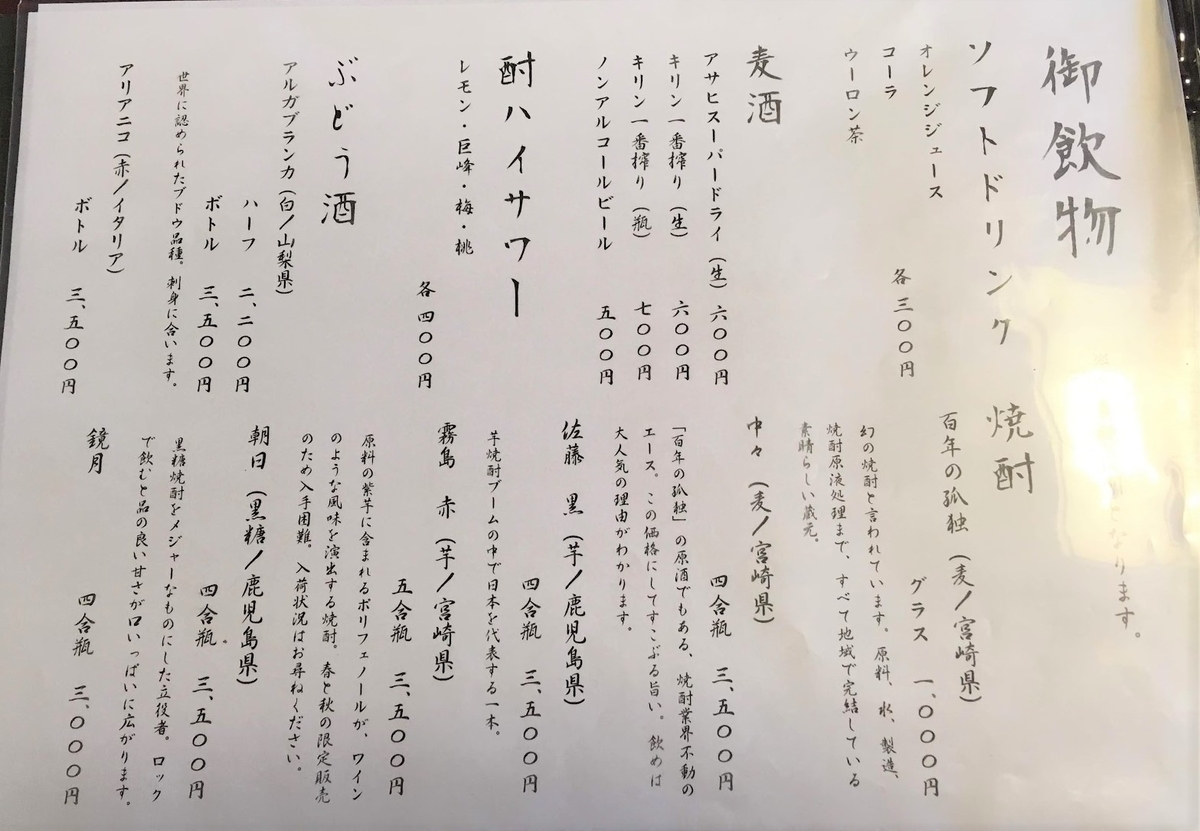 御飲物
ソフトドリンク
オレンジジュース
コーラ
ウーロン茶
各 三〇〇円
麦酒
アサヒスーパードライ(生) 六〇〇円
キリン一番搾り(生) 六〇〇円
キリン一番搾り(瓶) 七〇〇円
ノンアルコールビール 五〇〇円
酎ハイサワー
レモン・巨峰・梅・桃
各 四〇〇円
ぶどう酒
アルガブランカ(白/山梨県)
ハーフ 二、二〇〇円
ボトル 三、五〇〇円
世界に認められたブドウ品種。刺身に合います。
アリアニコ(赤/イタリア)
ボトル 三、五〇〇円
となります。
焼酎
百年の孤独(麦/宮崎県)
グラス 一、〇〇〇円
幻の焼酎と言われています。原料、水、製造、
焼酎原液処理まで、すべて地域で完結している
素晴らしい蔵元。
中々(麦/宮崎県)
四合瓶 三、五〇〇円
「百年の孤独」の原酒でもある、焼酎業界不動の
エース。この価格にしてすこぶる旨い。飲めば
大人気の理由がわかります。
佐藤 黒(芋/鹿児島県)
四合瓶 三、五〇〇円
芋焼酎ブームの中で日本を代表する一本。
霧島 赤(芋/宮崎県)
五合瓶 三、五〇〇円
原料の紫芋に含まれるポリフェノールが、ワイン
のような風味を演出する焼酎。春と秋の限定販売
のため入手困難。入荷状況はお尋ねください。
朝日(黒糖/鹿児島県)
四合瓶 三、五〇〇円
黒糖焼酎をメジャーなものにした立役者。ロック
で飲むと品の良い甘さが口いっぱいに広がります。
鏡月
四合瓶 三、〇〇〇円